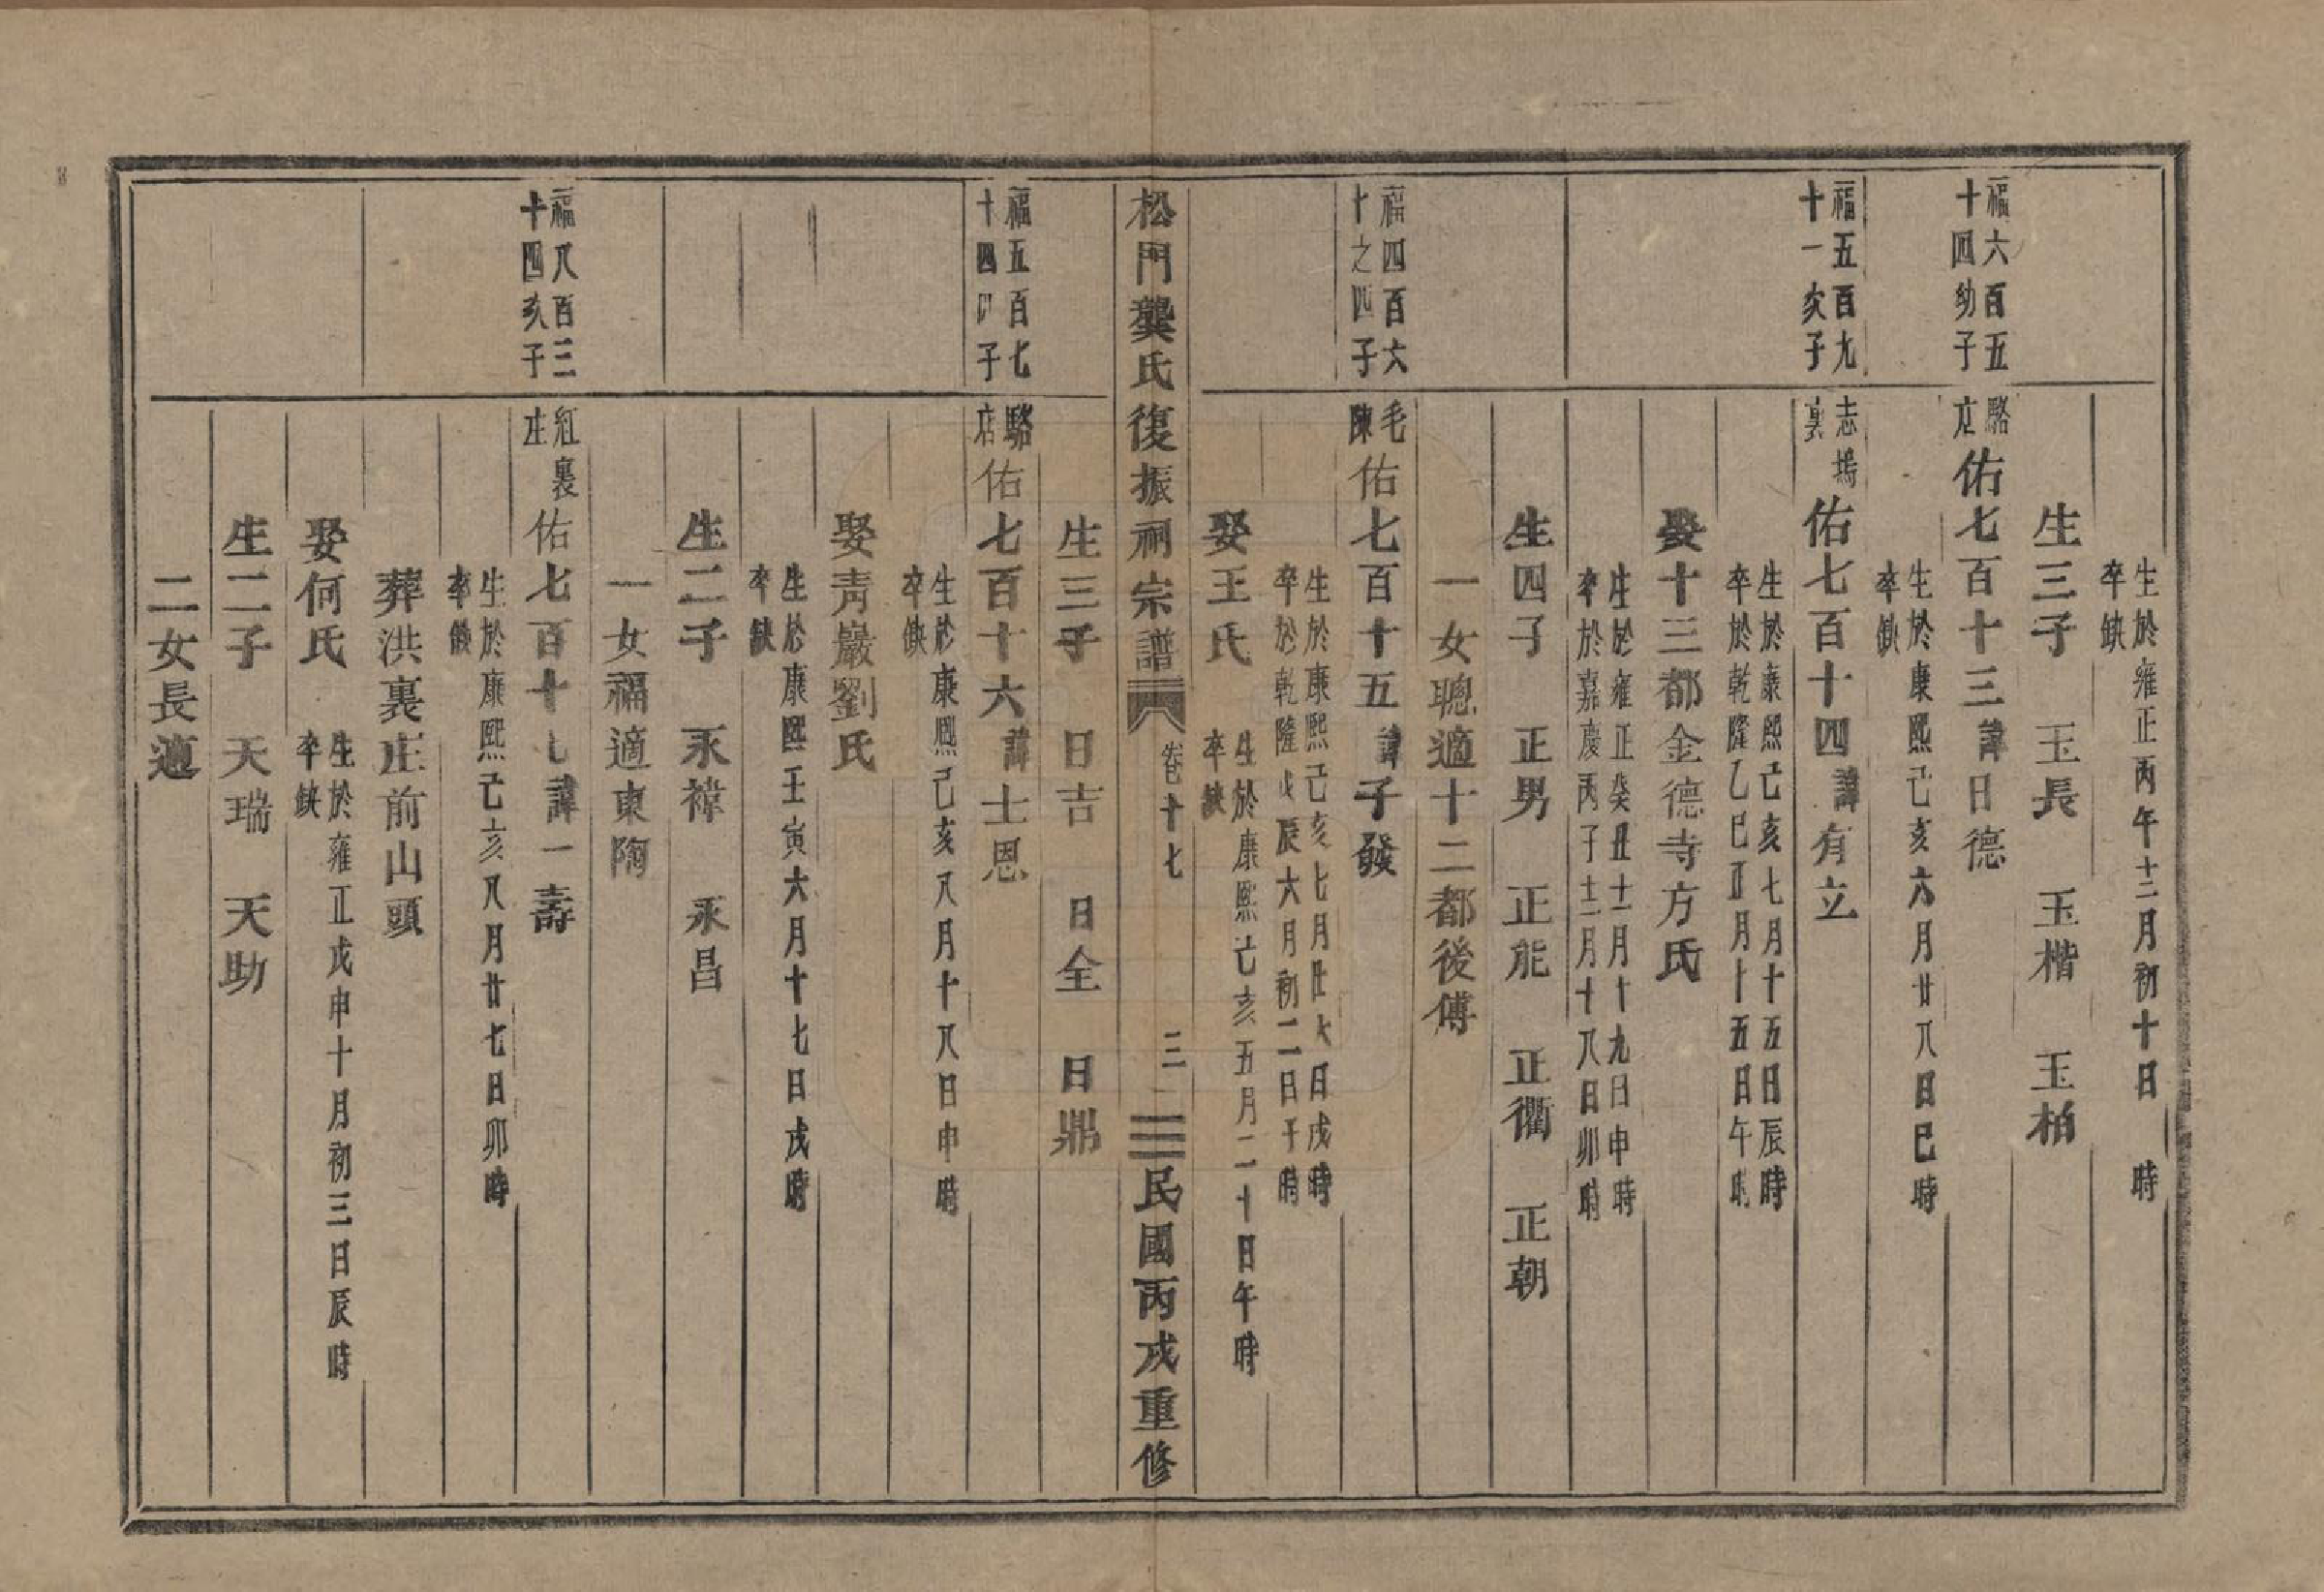 生於雍正丙午十二月初十日　時
卒缺
生三子　玉長　玉楷　玉柏
福六百五
十四幼子
駱
店
佑七百十三諱日德
生於康熙己亥六月廿八日巳時
卒缺
福五百九
十一次子
志塢
裏
佑七百十四諱有立
生於康熙己亥七月十五日辰時
卒於乾隆乙巳正月十五日午時
娶十三都金德寺方氏
生於雍正癸丑十一月十九日申時
卒於嘉慶丙子十二月十八日卯時
生四子　正男　正能　正衢　正朝
一女聰適十二都後傅
福四百六
十之四子
毛
陳
佑七百十五諱子發
生於康熙己亥七月廿六日戌時
卒於乾隆戊辰六月初二日午時
娶王氏
生於康熙己亥五月二十日午時
卒缺
松門龔氏復振祠宗譜　卷十七　三　民國丙戌重修
生三子　日吉　日全　日鼎
福五百七
十四四子
駱
店
佑七百十六諱士恩
生於康熙己亥八月十八日申時
卒缺
娶青巖劉氏
生於康熙壬寅六月十七日戌時
卒缺
生二子　永禕　永昌
一女福適東陶
福八百三
十四次子
紅裏
庄
佑七百十七諱一壽
生於康熙己亥八月廿七日卯時
卒缺
葬洪裏庄前山頭
娶何氏
生於雍正戊申十月初三日辰時
卒缺
生二子　天瑞　天助
二女長適